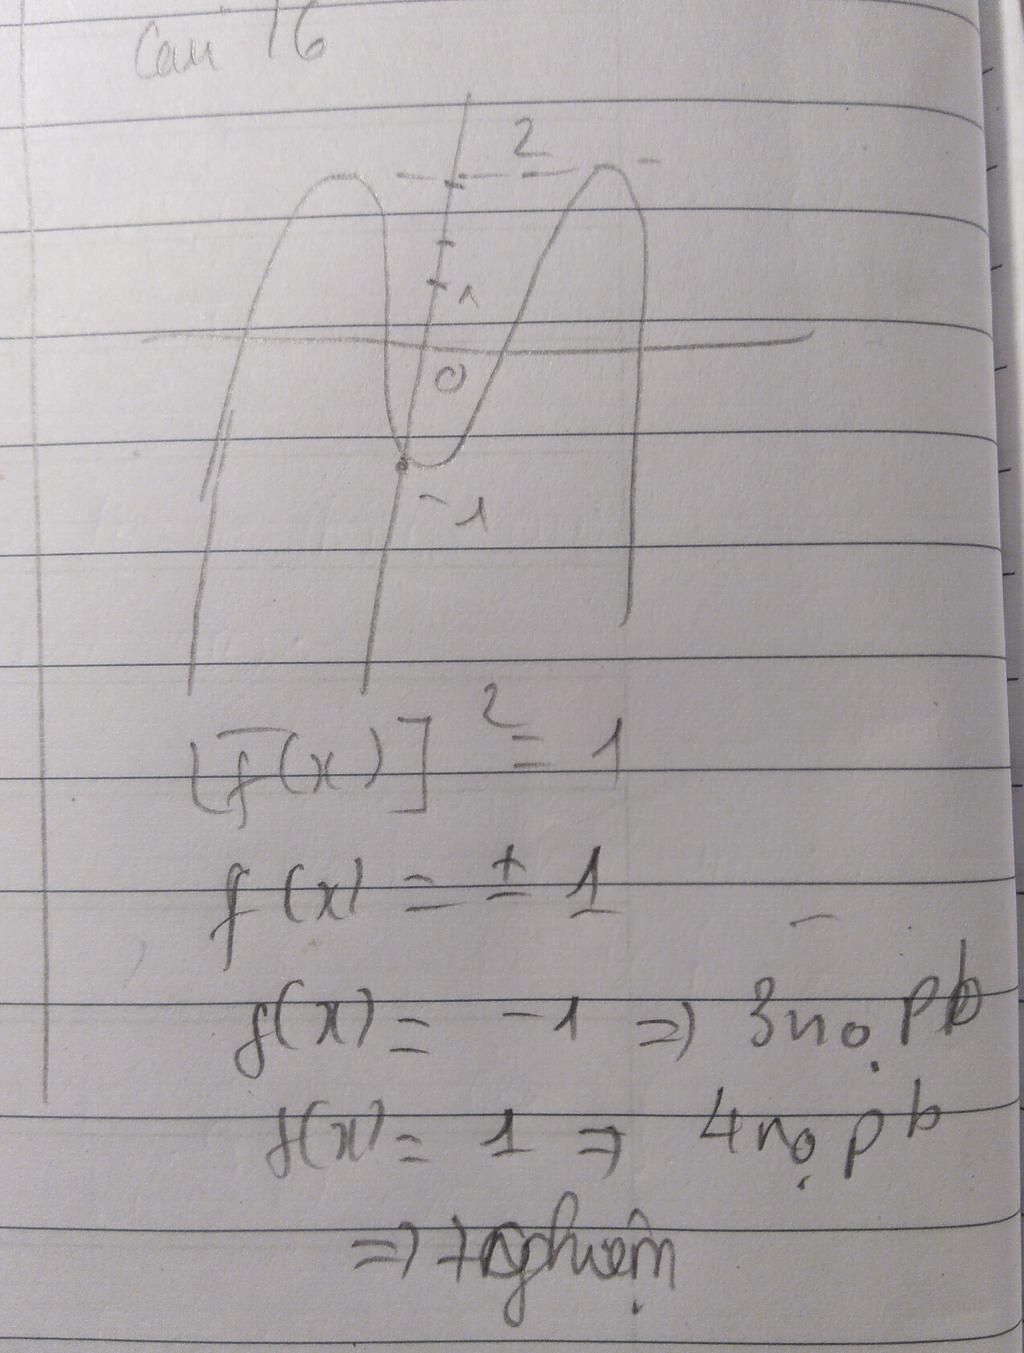 Câu 16
2
1
0
-1
[f(x)]² = 1
f(x) = ± 1
f(x) = -1 => 3 no pb
f(x) = 1 => 4 no pb
=> 7 nghiệm